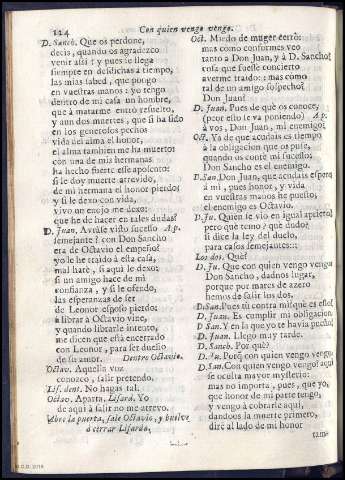 124
Con quien vengo vengo.
D. Sanch. Que os perdone,
decis, quando os agradezco
venir assi? y pues se llega
siempre en desdichas a tiempo,
las mias sabed, que pongo
en vuestras manos: yo tengo
dentro de mi casa un hombre,
que à matarme entrò resuelto,
y aun dos muertes, que si ha sido
en los generosos pechos
vida del alma el honor,
el alma tambien me ha muerto:
con una de mis hermanas
ha hecho fuerte este aposento:
si le doy muerte atrevido,
de mi hermana el honor pierdo;
y si le dexo con vida,
vivo un enojo me dexo:
que he de hacer en tales dudas?
D. Juan. Avràse visto sucesso A p.
semejante? con Don Sancho
era de Octavio el empeño?
yo le he traido à esta casa,
mal harè, si aqui le dexo;
si un amigo hace de mi
confianza, y si le ofendo,
las esperanzas de ser
de Leonor esposo pierdo:
à librar à Octavio vine,
y quando librarle intento,
me dicen que està encerrado
con Leonor, para ser dueño
de su amor. Dentro Octavio.
Octav. Aquella voz
conozco, salir pretendo.
Lis. dent. No hagas tal.
Octav. Aparta, Lisard. Yo
de aqui à salir no me atrevo.
Abre la puerta, sale Octavio, y buelve
à cerrar Lisardo.
Oct. Miedo de muger cerrò:
mas como conformes veo
tanto a Don Juan, y à D. Sancho?
cosa que fuesse concierto
averme traido: mas como
tal de un amigo sospecho?
Don Juan?
D. Juan. Pues de què os conoce,
(peor esto se va poniendo) A p.
à vos, Don Juan, mi enemigo?
Oct. Ya de que acudais es tiempo
à la obligacion que os puse,
quando os contè mi sucesso;
Don Sancho es el enemigo.
D. San. Don Juan, que acudais espero
à mi, pues honor, y vida
en vuestras manos he puesto,
el enemigo es Octavio.
D. Ju. Quien se viò en igual aprieto!
pero que temo? què dudo?
si dice la ley del duelo,
para casos semejantes::
Los dos. Què?
D. Ju. Que con quien vengo vengo:
Don Sancho, dadnos lugar,
porque por mares de azero
hemos de salir los dos.
D. San. Pues tù contra mi? què es esso?
D. Juan. Es cumplir mi obligacion
D. San. Y en la que yo te havia puesto?
D. Juan. Llego muy tarde.
D. Sanch. Por què?
D. Ju. Porq̃ con quien vengo vengo.
D. San. Con quien vengo vengo? aqui
se oculta mayor mysterio:
mas no importa, pues, que yo,
que honor de mi parte tengo,
y vengo à cobrarle aqui,
dandoos la muerte primero,
dirè al lado de mi honor